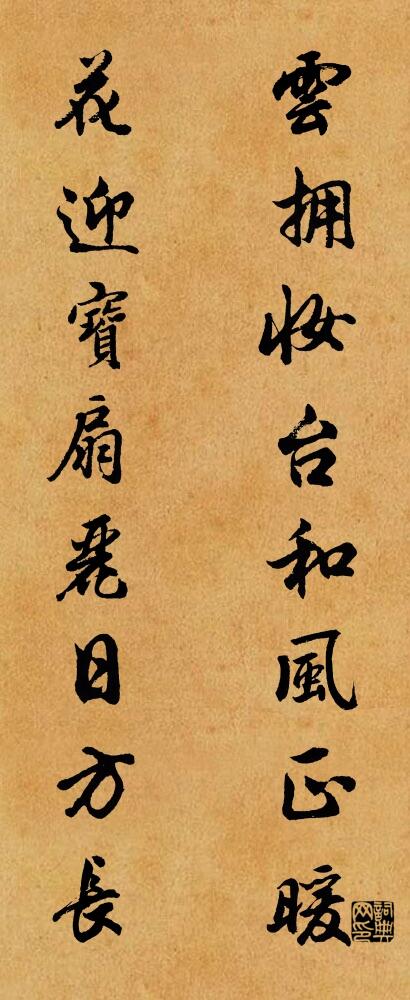 雲拥妆台和風正暖
花迎寶扇麗日方長
詞典网印